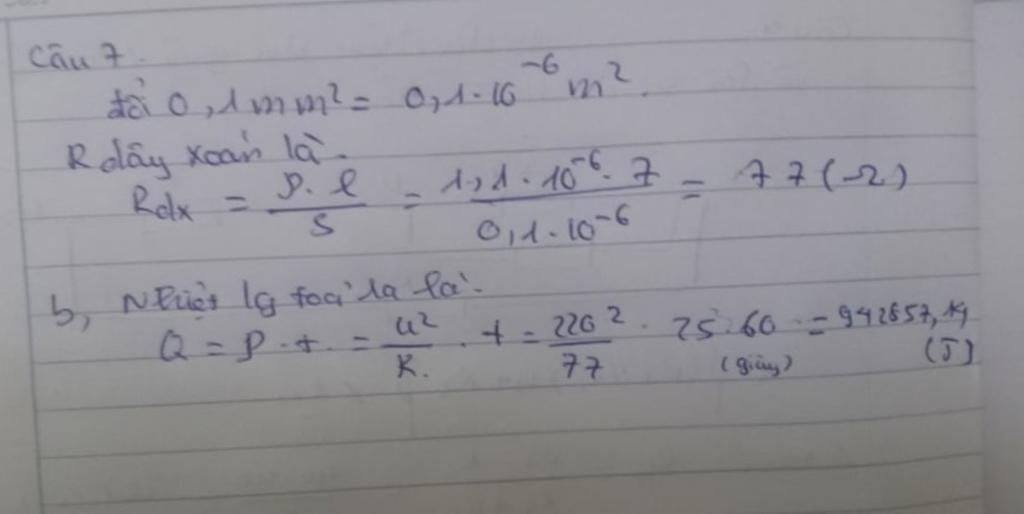 Câu 7.
đổi 0,1mm² = 0,1.10⁻⁶ m².
R dây xoắn là.
Rdx = ρ.l / S = 1,1.10⁻⁶.7 / 0,1.10⁻⁶ = 77 (Ω)
b, Nhiệt lg toả ra là.
Q = P.t = U² / R. . t = 220² / 77 . 25.60 = 942857,14
(giây) (J)